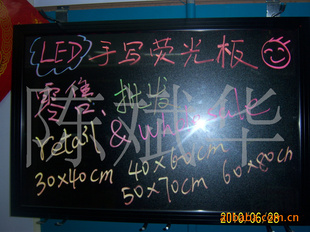 LED 手写荧光板
零售、批发
retail & wholesale
30×40cm 40×60cm 60×80cm
50×70cm
陈斌华
2010/06/28